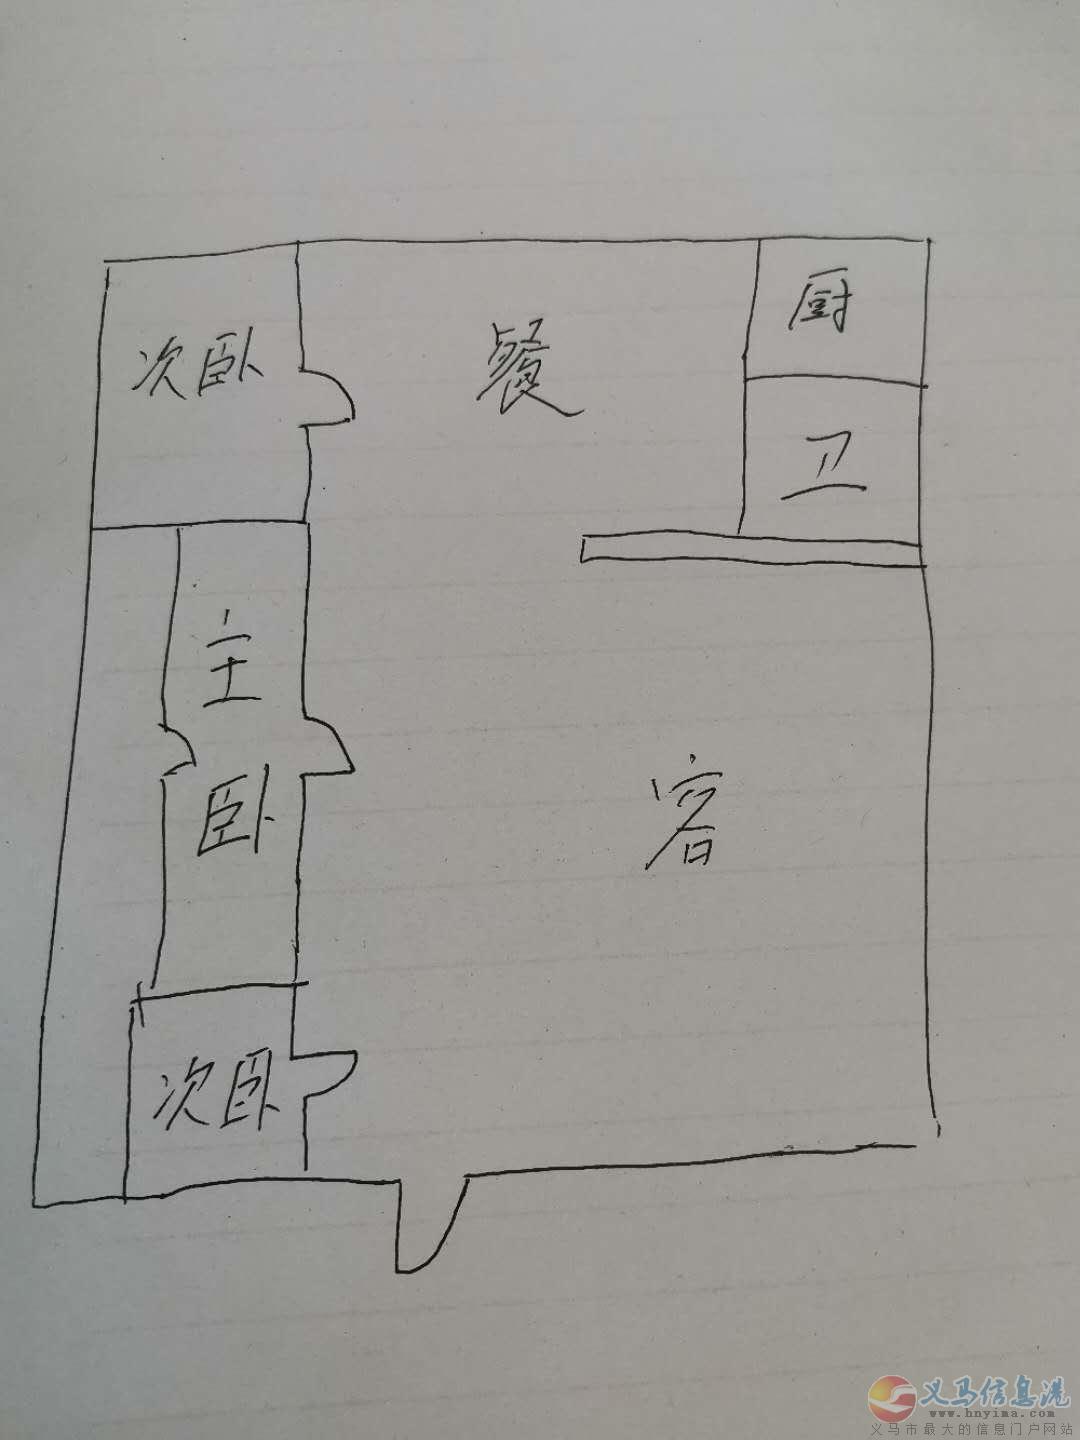 厨
次卧
餐
卫
主
卧
客
次卧
义马信息港
www.hnyima.com
义马市最大的信息门户网站